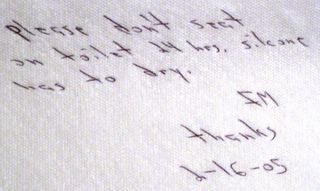 please don't seat
on toilet 24 hrs. silicone
has to dry.
IM
thanks
2-16-05